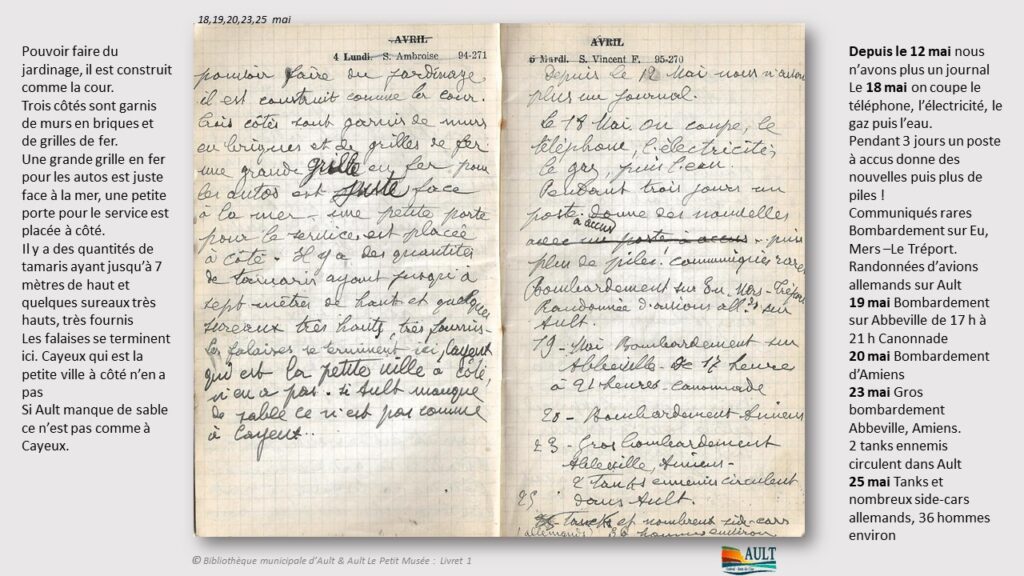 18,19,20,23,25 mai
Pouvoir faire du
jardinage, il est construit
comme la cour.
Trois côtés sont garnis
de murs en briques et
de grilles de fer.
Une grande grille en fer
pour les autos est juste
face à la mer, une petite
porte pour le service est
placée à côté.
Il y a des quantités de
tamaris ayant jusqu’à 7
mètres de haut et
quelques sureaux très
hauts, très fournis
Les falaises se terminent
ici. Cayeux qui est la
petite ville à côté n’en a
pas
Si Ault manque de sable
ce n’est pas comme à
Cayeux.
AVRIL
4 Lundi. S. Ambroise 94-271
pouvoir faire du jardinage
il est construit comme la cour.
trois côtés sont garnis de murs
en briques et de grilles de fer
une grande grille en fer pour
les autos est juste face
à la mer - une petite porte
pour le service est placée
à côté. Il y a des quantités
de tamaris ayant jusqu'à
sept mètres de haut et quelques
sureaux très hauts, très fournis.
les falaises se terminent ici, Cayeux
qui est la petite ville à côté,
n'en a pas. Si Ault manque
de sable ce n'est pas comme
à Cayeux..
AVRIL
5 Mardi. S. Vincent F. 95-270
Depuis le 12 Mai nous n'avons
plus un journal.
Le 18 Mai on coupe, le
téléphone, l'électricité,
le gaz, puis l'eau.
Pendant trois jours un
poste à accus donne des nouvelles
avec un poste à accus.. puis
plus de piles. communiqués rares
Bombardement sur Eu, Mers-Tréport
Randonnée d'avions alld. sur
Ault.
19 - Mai Bombardement sur
Abbeville - de 17 heure
à 21 heures - canonnade
20 - Bombardement Amiens
23 - Gros bombardement
Abbeville, Amiens -
2 Tanks ennemis circulent
dans Ault.
25 Tanks et nombreux side-cars
(allemands) 36 hommes environ
Depuis le 12 mai nous
n’avons plus un journal
Le 18 mai on coupe le
téléphone, l’électricité, le
gaz puis l’eau.
Pendant 3 jours un poste
à accus donne des
nouvelles puis plus de
piles !
Communiqués rares
Bombardement sur Eu,
Mers –Le Tréport.
Randonnées d’avions
allemands sur Ault
19 mai Bombardement
sur Abbeville de 17 h à
21 h Canonnade
20 mai Bombardement
d’Amiens
23 mai Gros
bombardement
Abbeville, Amiens.
2 tanks ennemis
circulent dans Ault
25 mai Tanks et
nombreux side-cars
allemands, 36 hommes
environ
© Bibliothèque municipale d’Ault & Ault Le Petit Musée : Livret 1
AULT